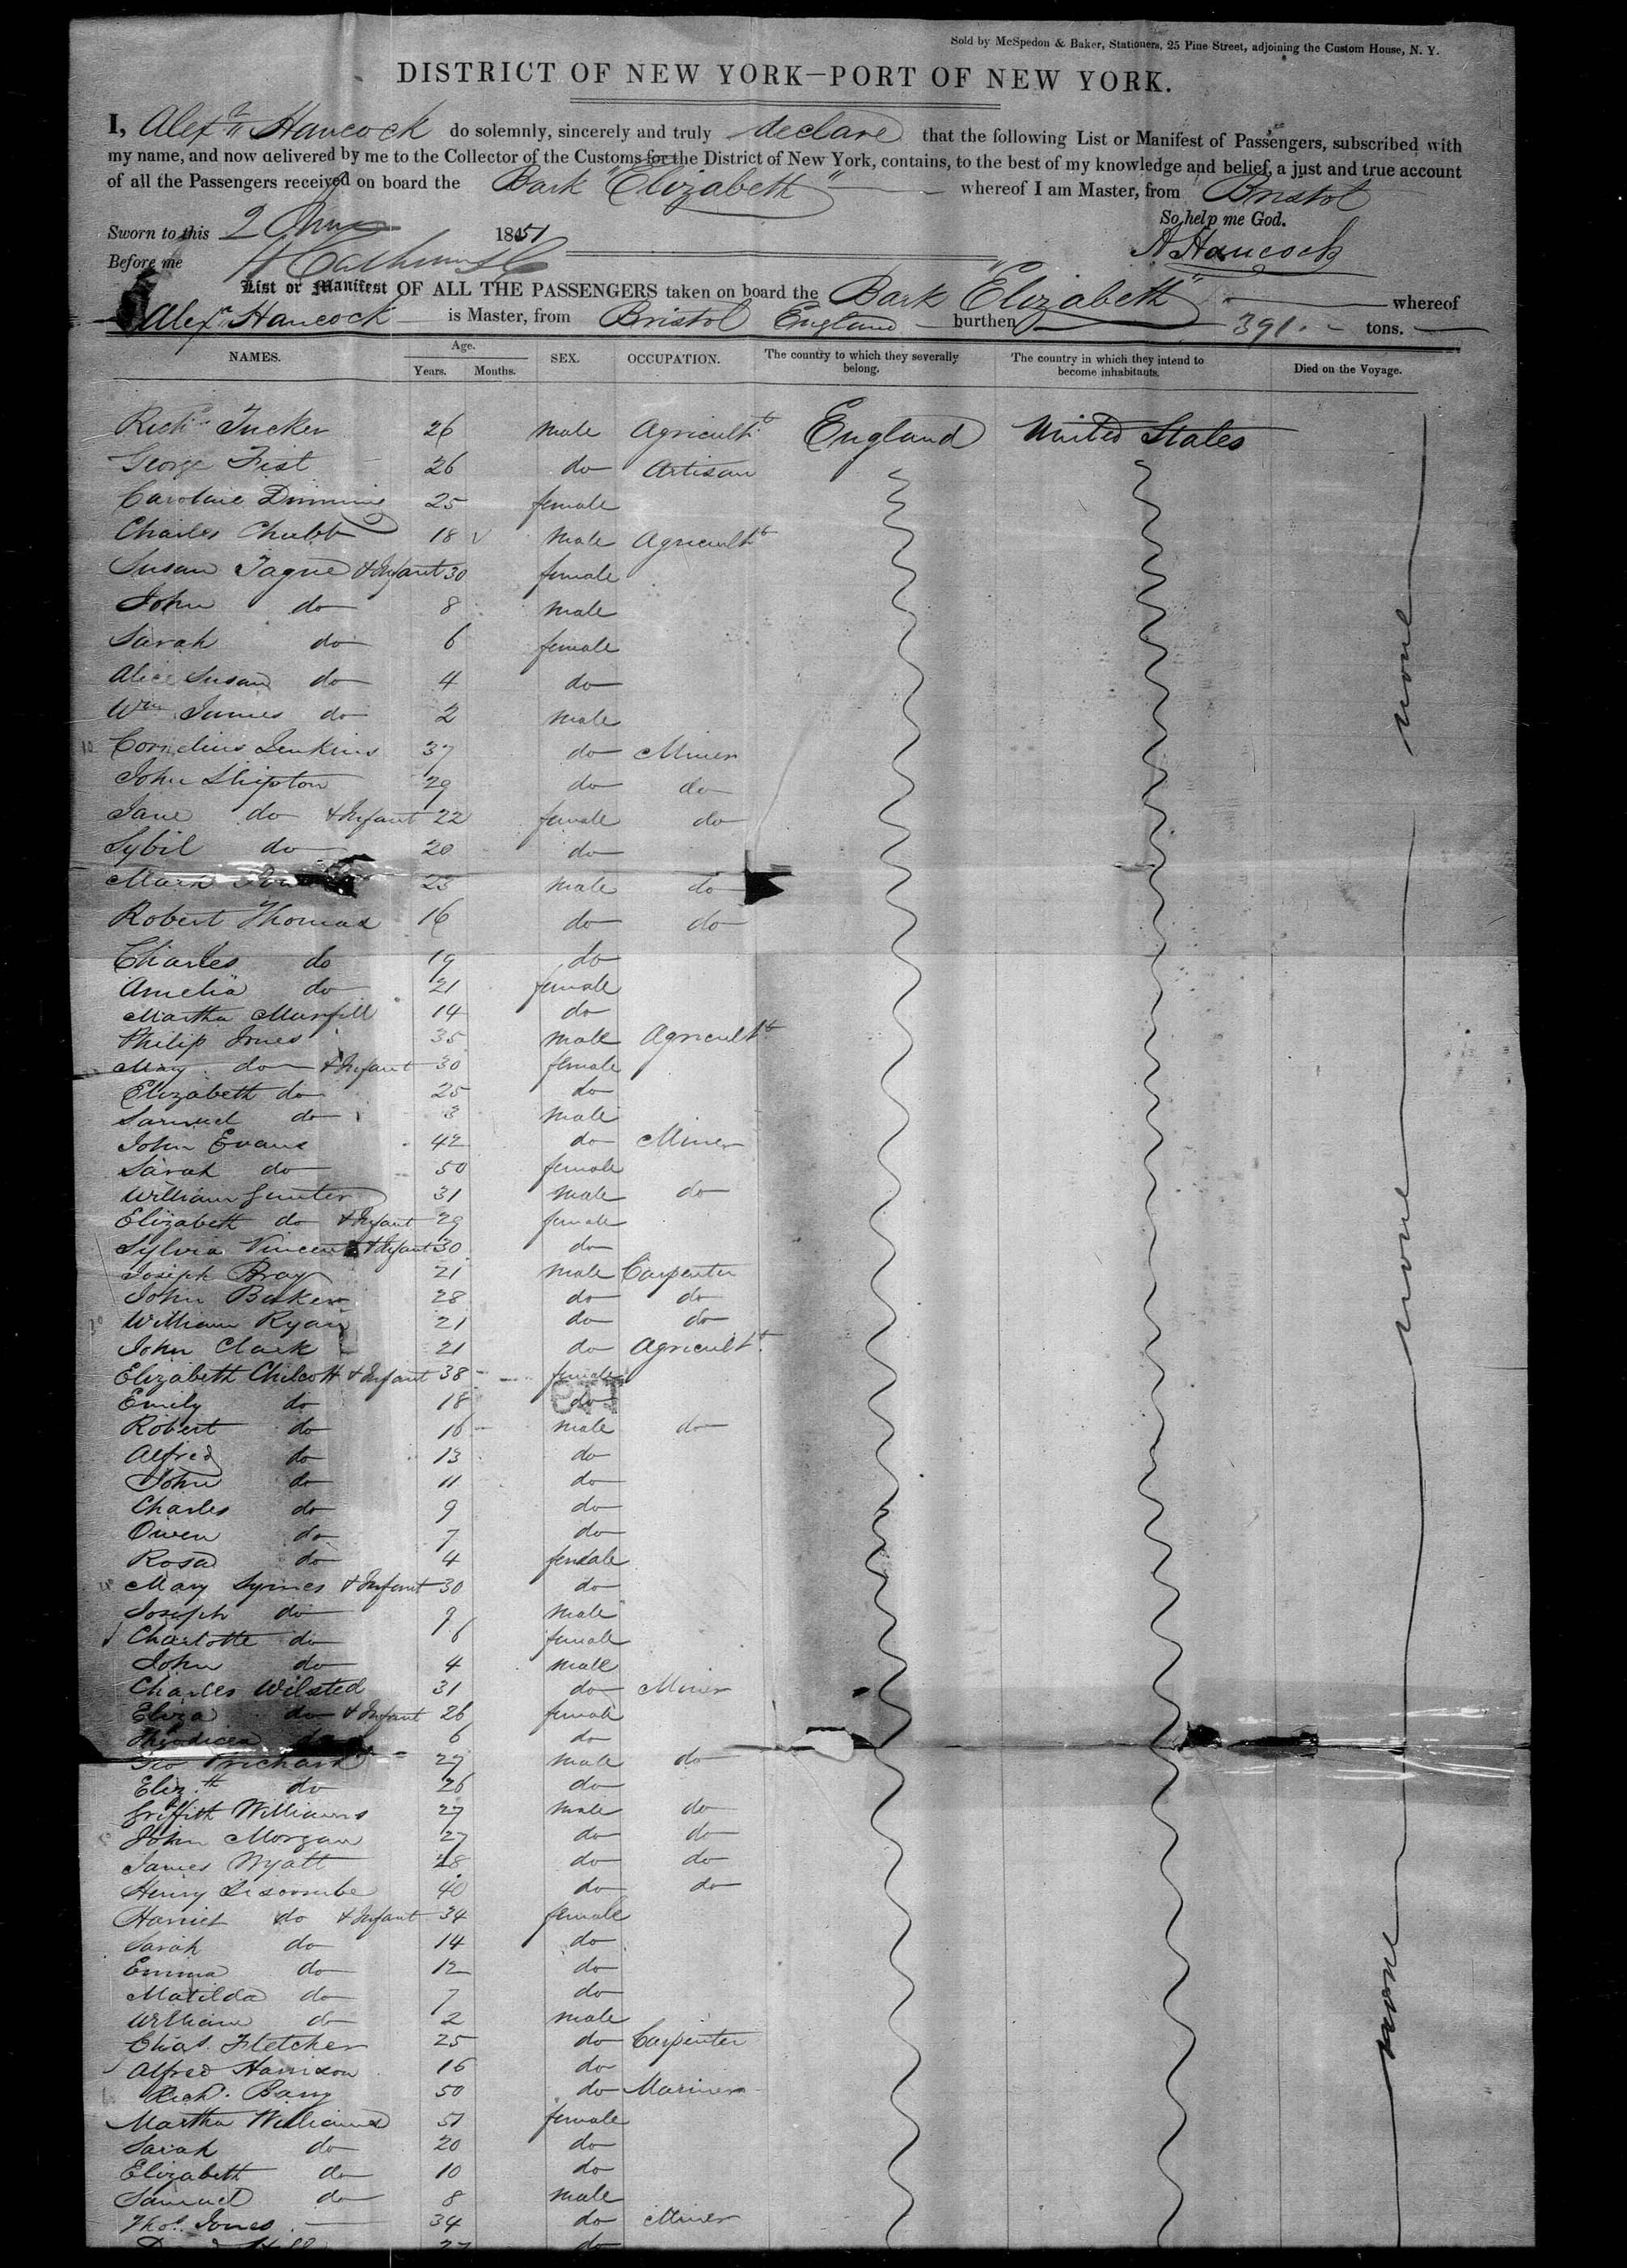 Sold by McSpedon & Baker, Stationers, 25 Pine Street, adjoining the Custom House, N. Y.
DISTRICT OF NEW YORK—PORT OF NEW YORK.
I, Alexr Hancock do solemnly, sincerely and truly declare that the following List or Manifest of Passengers, subscribed with
my name, and now delivered by me to the Collector of the Customs for the District of New York, contains, to the best of my knowledge and belief, a just and true account
of all the Passengers received on board the Bark "Elizabeth" whereof I am Master, from Bristol
So help me God.
Sworn to this 2 1851
A Hancock
Before me
List or Manifest OF ALL THE PASSENGERS taken on board the Bark "Elizabeth" whereof
Alexr Hancock is Master, from Bristol England burthen 391 tons.
NAMES. Age. Years. Months. SEX. OCCUPATION. The country to which they severally belong. The country in which they intend to become inhabitants. Died on the Voyage.
Richd Tucker 26 male Agricult England United States
George Fist 26 do Artisan
Caroline 25 female
Charles Chubb 18 male Agricult
Susan Tague & Infant 30 female
John do 8 male
Sarah do 6 female
Alice Susan do 4 do
Wm James do 2 male
10 Cornelius Jenkins 37 do Miner
John Shipton 29 do do
Jane do & Infant 22 female do
Sybil do 20 do
Mark 23 male do
Robert Thomas 16 do do
Charles do 19 do
Amelia do 21 female
Martha 14 do
Philip Jones 35 male Agricult
Mary do & Infant 30 female
Elizabeth do 25 do
Samuel do 3 male
John Evans 42 do Miner
Sarah do 50 female
William Gunter 31 male do
Elizabeth do & Infant 29 female
Sylvia Vincent & Infant 30 do
Joseph Bray 21 male Carpenter
John Baker 28 do do
30 William Ryan 21 do do
John Clark 21 do Agricult
Elizabeth Chilcott & Infant 38 female
Emily do 18 do
Robert do 16 male do
Alfred do 13 do
John do 11 do
Charles do 9 do
Owen do 7 do
Rosa do 4 female
Mary Symes & Infant 30 do
Joseph do 9 male
Charlotte do 6 female
John do 4 male
Charles Wilsted 31 do Miner
Eliza do & Infant 26 female
do 6 do
Geo Prichard 27 male do
Elizth do 26 do
Griffith Williams 27 male do
John Morgan 27 do do
James Wyatt 28 do do
Henry Liscombe 40 do do
Harriet do & Infant 34 female
Sarah do 14 do
Emma do 12 do
Matilda do 7 do
William do 2 male
Chas. Fletcher 25 do Carpenter
Alfred Harrison 16 do
Richd. Barry 50 do Mariner
Martha Williams 51 female
Sarah do 20 do
Elizabeth do 10 do
Samuel do 8 male
Thos. Jones 34 do Miner
27 do
none
none
none